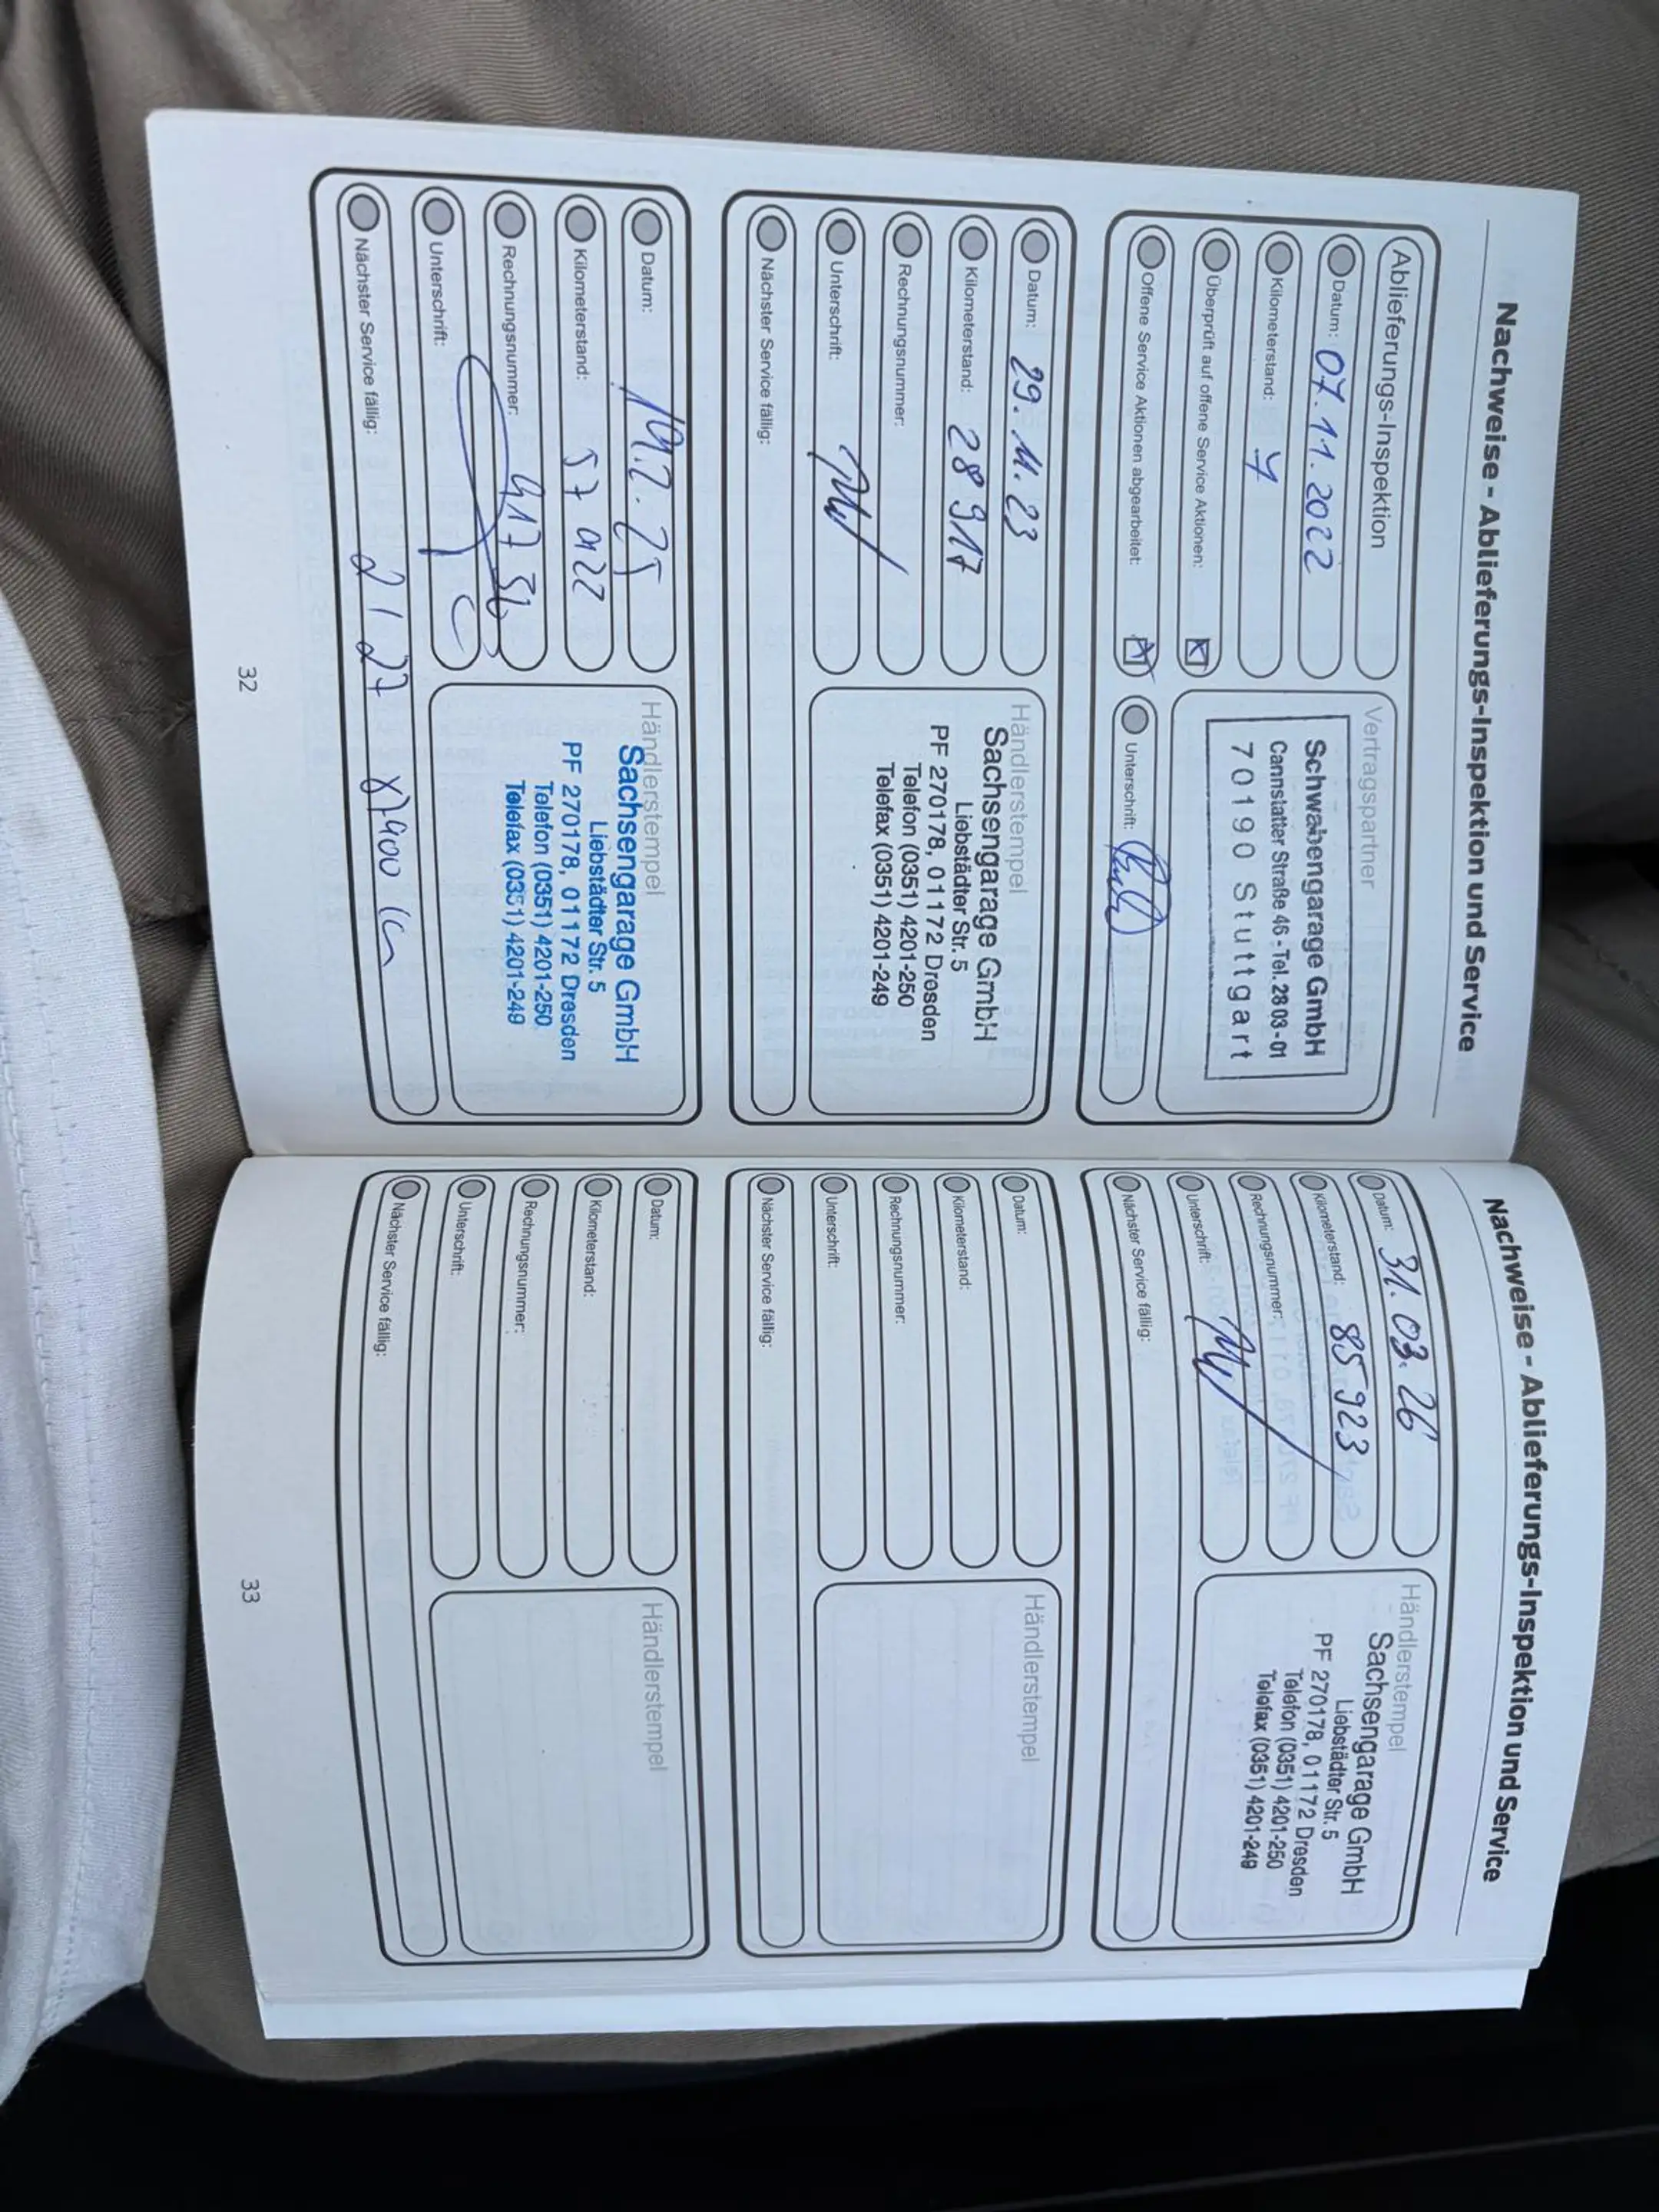 Nachweise - Ablieferungs-Inspektion und Service
Ablieferungs-Inspektion
Datum: 07.11.2022
Kilometerstand:
Überprüft auf offene Service Aktionen: X
Offene Service Aktionen abgearbeitet: X
Vertragspartner
Schwabengarage GmbH
Cannstatter Straße 46 - Tel. 28 03 - 01
70190 Stuttgart
Unterschrift:
Datum: 29.11.23
Kilometerstand: 28 917
Rechnungsnummer:
Unterschrift:
Nächster Service fällig:
Händlerstempel
Sachsengarage GmbH
Liebstädter Str. 5
PF 270178, 01172 Dresden
Telefon (0351) 4201-250
Telefax (0351) 4201-249
Datum: 19.2.25
Kilometerstand:
Rechnungsnummer:
Unterschrift:
Nächster Service fällig: 2/27
Händlerstempel
Sachsengarage GmbH
Liebstädter Str. 5
PF 270178, 01172 Dresden
Telefon (0351) 4201-250
Telefax (0351) 4201-249
32
Nachweise - Ablieferungs-Inspektion und Service
Datum: 31.03.26
Kilometerstand: 85 923
Rechnungsnummer:
Unterschrift:
Nächster Service fällig:
Händlerstempel
Sachsengarage GmbH
Liebstädter Str. 5
PF 270178, 01172 Dresden
Telefon (0351) 4201-250
Telefax (0351) 4201-249
Datum:
Kilometerstand:
Rechnungsnummer:
Unterschrift:
Nächster Service fällig:
Händlerstempel
Datum:
Kilometerstand:
Rechnungsnummer:
Unterschrift:
Nächster Service fällig:
Händlerstempel
33